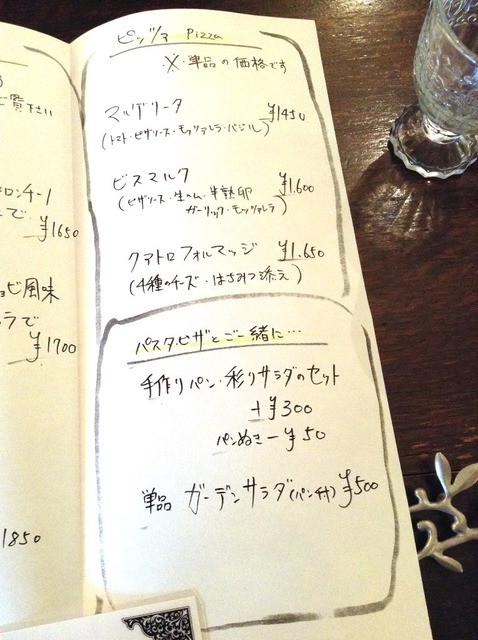 覧下さい
ロンチーノ
で
¥1650
風味
ラで
¥1700
1850
ピッツァ Pizza
※・単品の価格です
マルゲリータ ¥1450
(トマト・ピザソース・モッツァレラ・バジル)
ビスマルク ¥1.600
(ピザソース・生ハム・半熟卵
ガーリック・モッツァレラ)
クアトロフォルマッジ ¥1.650
(4種のチーズ・はちみつ添え)
パスタ、ピザとご一緒に…
手作りパン・彩りサラダのセット
+¥300
パンぬき-¥50
単品 ガーデンサラダ(パン付) ¥500